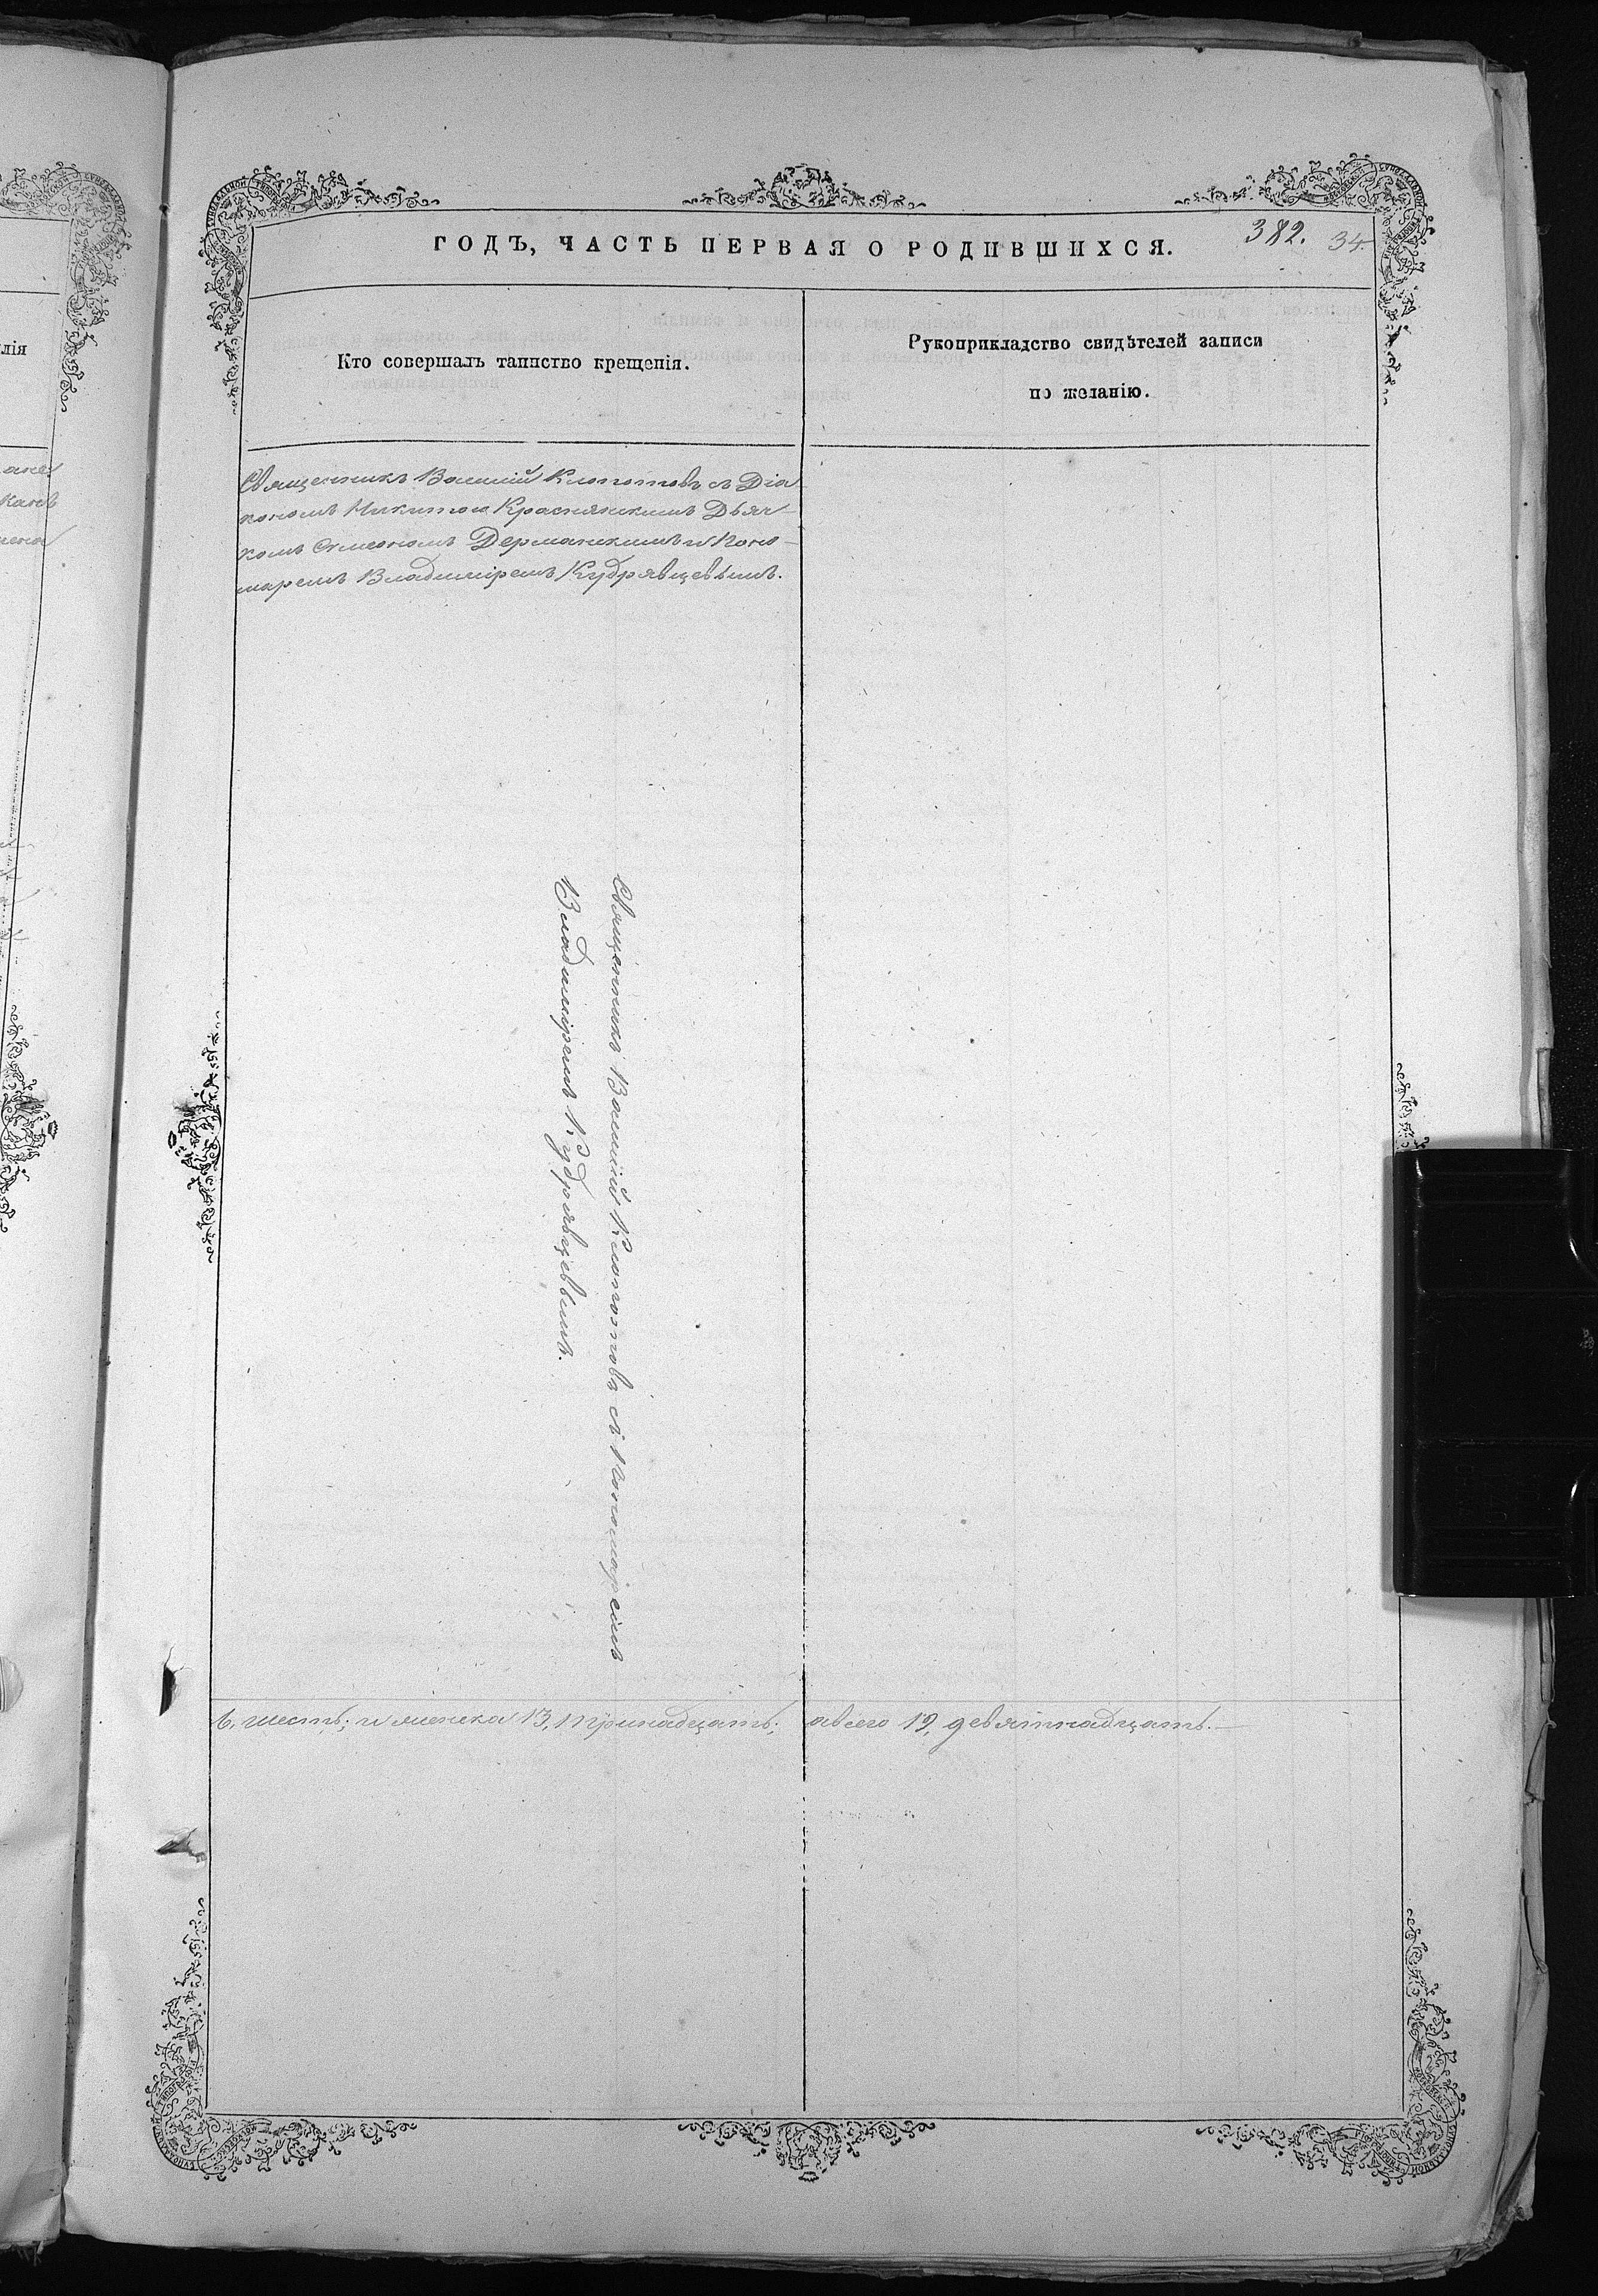 ГОДЪ, ЧАСТЬ ПЕРВАЯ О РОДИВШИХСЯ.
382. 34
лія
Кто совершалъ таинство крещенія.
Рукоприкладство свидѣтелей записи
по желанію.
Священникъ Василій Клопотовъ съ Діа
кономъ Никитою Краснянскимъ Дьяч-
комъ Симеономъ Дерманскимъ и Поно-
маремъ Владиміремъ Кудрявцевымъ.
Священникъ Василій Клопотовъ съ Пономаремъ
Владиміремъ Кудрявцевымъ.
6, шесть; и женска 13, тринадцать; а всего 19, девятнадцать.—